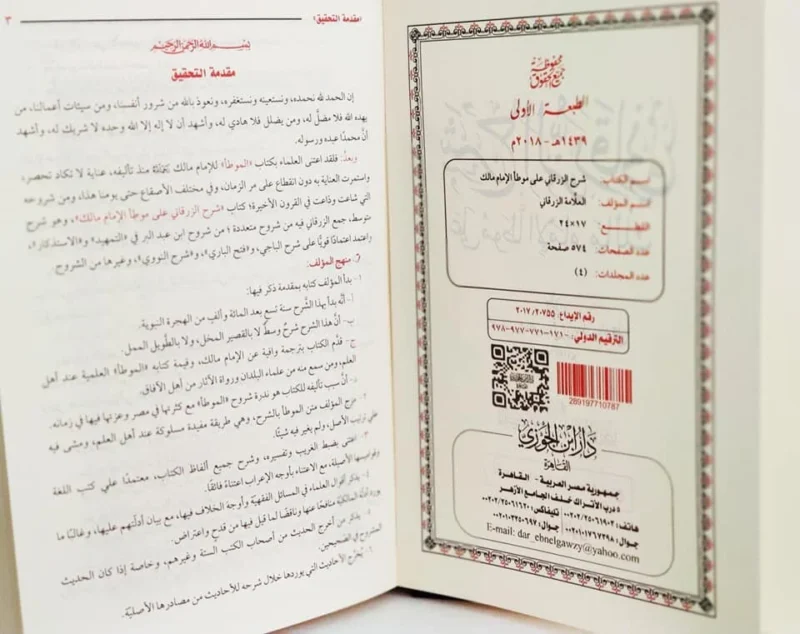 جميع حقوق محفوظة
الطبعة الأولى
١٤٣٩هـ - ٢٠١٨م
اسم الكتاب: شرح الزرقاني على موطأ الإمام مالك
اسم المؤلف: العلَّامة الزرقاني
القطــع: ١٧×٢٤
عدد الصفحات: ٥٧٤ صفحة
عدد المجلدات: (٤)
رقم الإيداع: ٢٠١٧/٢٠٧٥٥
الترقيم الدولي: ٩٧٨-٩٧٧-٧٧١-١٧١-٠
289197710787
دار ابن الجوزي
القاهرة
جمهورية مصر العربية - القاهرة
٥ درب الأتراك خلف الجامع الأزهر
هاتف: ٠٠٢٠٢/٢٥٠٦١٩٠٣ تليفاكس: ٠٠٢٠٢/٢٥٠٦١٦٢٠
E-mail: dar_ebnelgawzy@yahoo.com
«مقدمة التحقيق» ٣
بسم الله الرحمن الرحيم
مقدمة التحقيق
إن الحمد لله نحمده، ونستعينه ونستغفره، ونعوذ بالله من شرور أنفسنا، ومن سيئات أعمالنا، من
يهده الله فلا مضلَّ له، ومن يضلل فلا هادي له، وأشهد أن لا إله إلا الله وحده لا شريك له، وأشهد
أنَّ محمدًا عبده ورسوله.
وبعدُ: فلقد اعتنى العلماء بكتاب «الموطأ» للإمام مالك منذ تأليفه، عناية لا تكاد تنحصر،
واستمرت العناية به دون انقطاع على مر الزمان، وفي مختلف الأصقاع حتى يومنا هذا، ومن شروحه
التي شاعت وذاعت في القرون الأخيرة؛ كتاب «شرح الزرقاني على موطأ الإمام مالك»، وهو شرح
متوسط، جمع الزرقاني فيه من شروح متعددة؛ من شروح ابن عبد البر في «التمهيد» و«الاستذكار»،
واعتمد اعتمادًا قويًّا على شرح الباجي، و«فتح الباري»، و«شرح النووي»، وغيرها من الشروح.
منهج المؤلف:
١- بدأ المؤلف كتابه بمقدمة ذكر فيها:
أ- أنَّه بدأ بهذا الشَّرح سنة تسع بعد المائة وألف من الهجرة النبوية.
ب- أن هذا الشرح شرحٌ وسطٌ لا بالقصير المخل، ولا بالطَّويل الممل.
ج- قدَّم الكتاب بترجمة وافية عن الإمام مالك، وقيمة كتابه «الموطأ» العلمية عند أهل
العلم، ومن سمع منه من علماء البلدان ورواة الآثار من أهل الآفاق.
د- أنَّ سبب تأليفه للكتاب هو ندرة شروح «الموطأ» مع كثرتها في مصر وعزتها فيها في زمانه.
٢- مزج المؤلف متن الموطأ بالشرح، وهي طريقة مفيدة مسلوكة عند أهل العلم، ومشى فيه
على ترتيب الأصل، ولم يغير فيه شيئًا.
٣- اعتنى بضبط الغريب وتفسيره، وشرح جميع ألفاظ الكتاب، معتمدًا على كتب اللغة
الأصيلة، مع الاعتناء بأوجه الإعراب اعتناءً فائقًا.
٤- يذكر أقوال العلماء في المسائل الفقهية وأوجه الخلاف فيها، مع بيان أدلَّتهم عليها، وغالبًا ما
يورد أدلة المالكية منافحًا عنها وناقضًا لما قيل فيها من قدحٍ واعتراض.
٥- يذكر من أخرج الحديث من أصحاب الكتب الستة وغيرهم، وخاصة إذا كان الحديث
المشروح في الصحيحين.
٦- يُخرِّج الأحاديث التي يوردها خلال شرحه للأحاديث من مصادرها الأصليَّة.